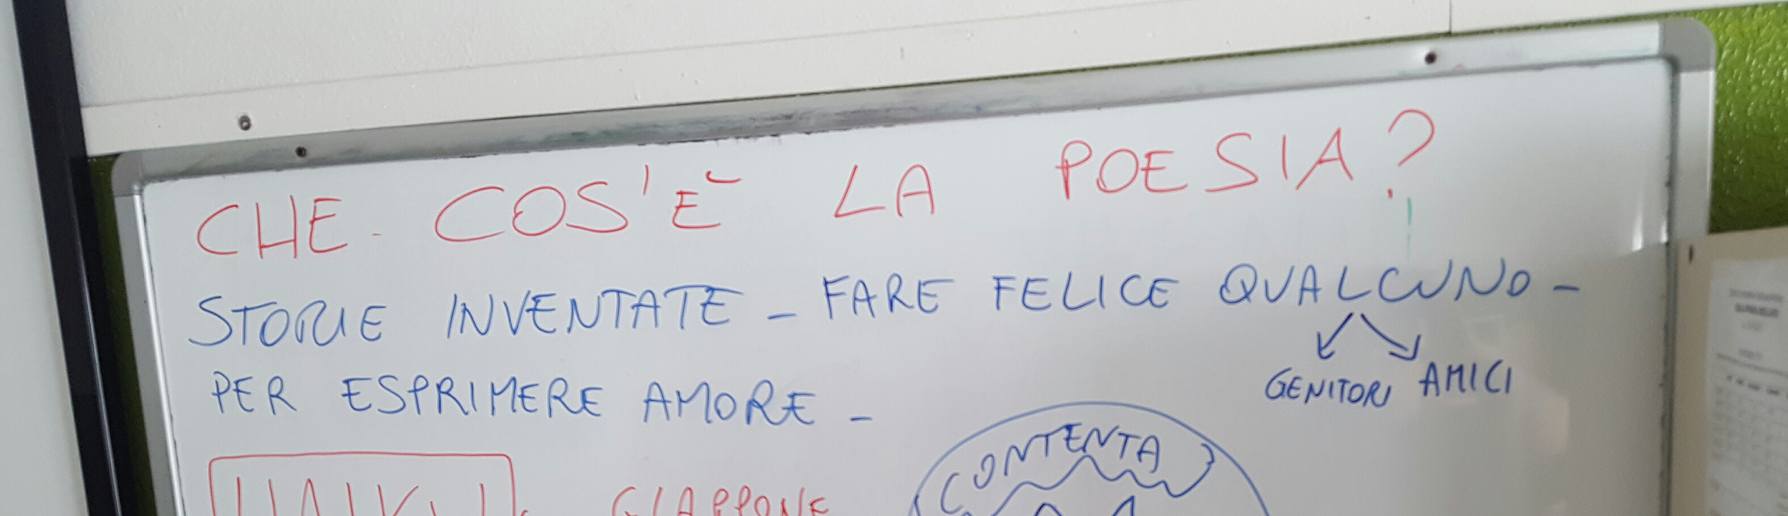 CHE COS'È LA POESIA?
STORIE INVENTATE - FARE FELICE QUALCUNO -
GENITORI AMICI
PER ESPRIMERE AMORE -
CONTENTA
HAIKU GIAPPONE